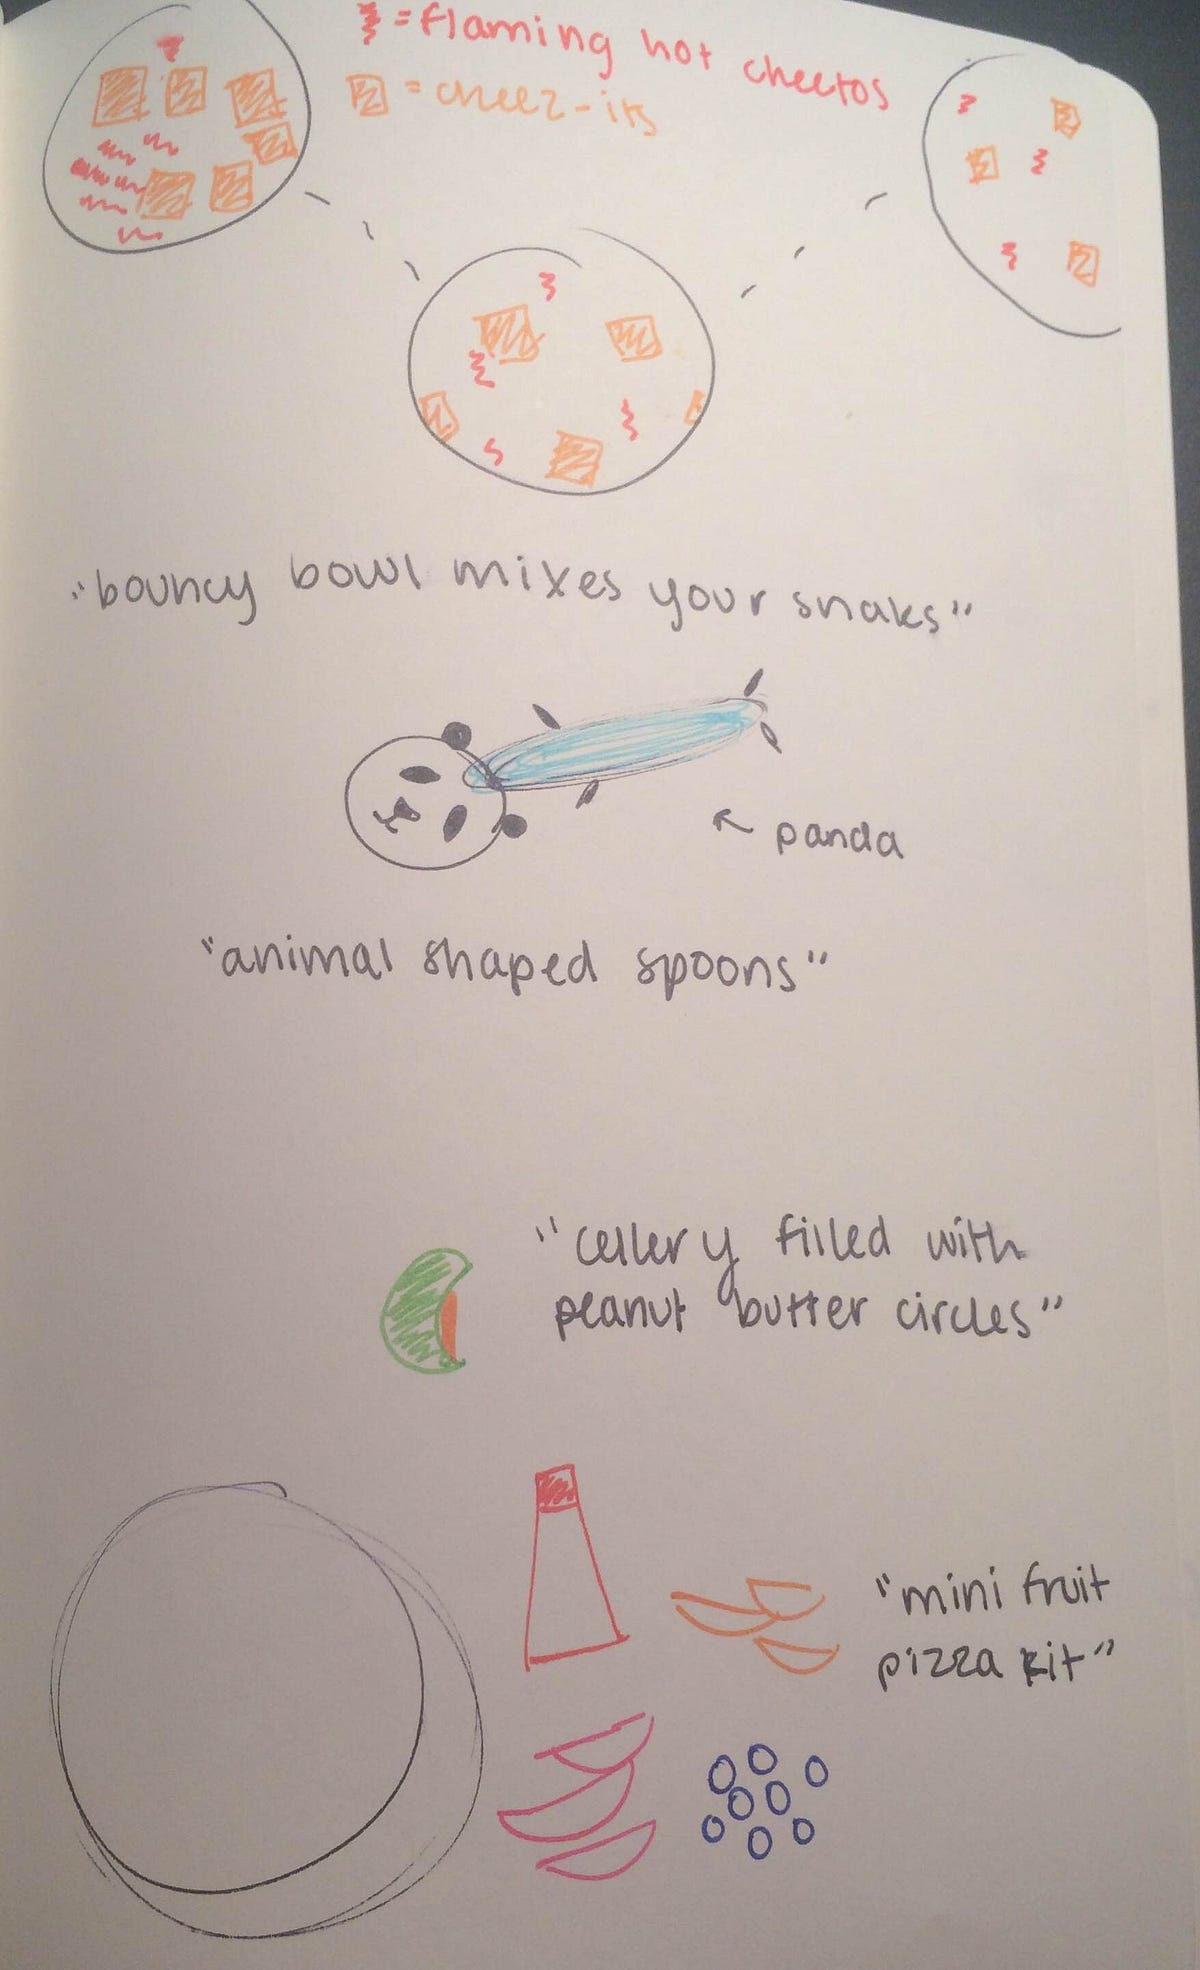 = flaming hot cheetos
= cheez-its
"bouncy bowl mixes your snaks"
panda
"animal shaped spoons"
"cellery filled with
peanut butter circles"
"mini fruit
pizza kit"